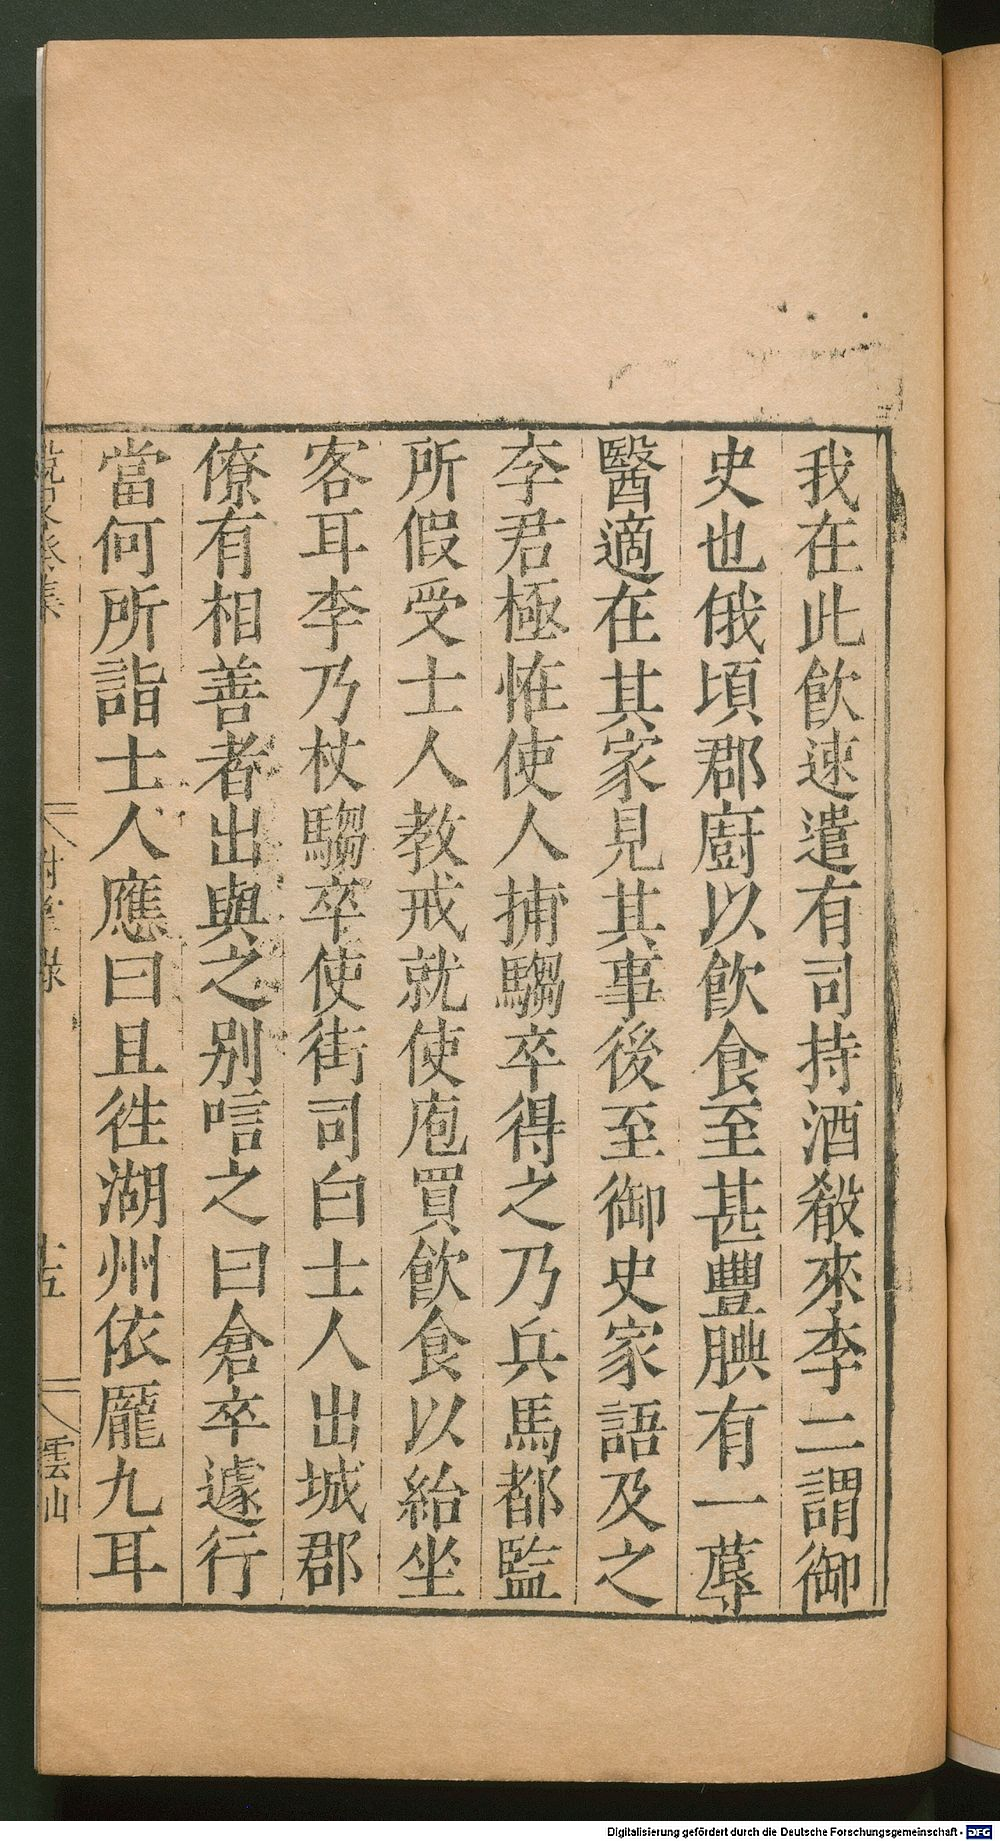 我在此飲速遣有司持酒殽來李二謂御
史也俄頃郡廚以飲食至甚豐腆有一蓐
醫適在其家見其事後至御史家語及之
李君極恠使人捕騶卒得之乃兵馬都監
所假受士人教戒就使庖買飲食以紿坐
客耳李乃杖騶卒使街司白士人出城郡
僚有相善者出與之別唁之曰倉卒遽行
當何所詣士人應曰且徃湖州依龎九耳
拊掌錄
十五
雲山
Digitalisierung gefördert durch die Deutsche Forschungsgemeinschaft - DFG